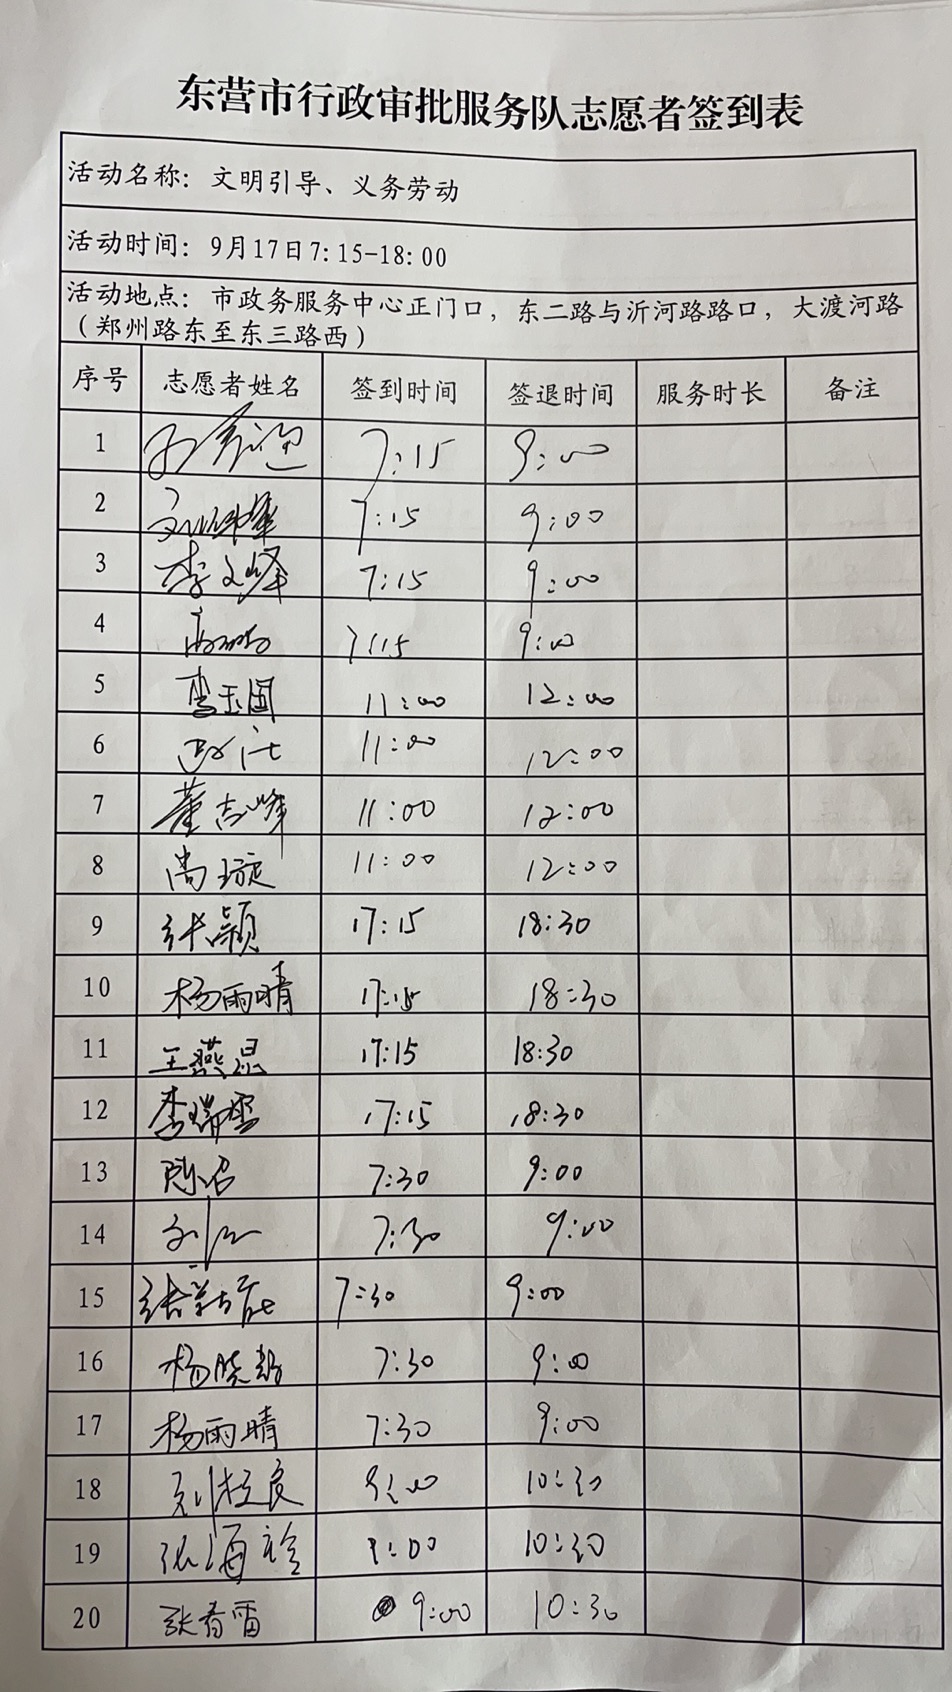 东营市行政审批服务队志愿者签到表
活动名称：文明引导、义务劳动
活动时间：9月17日7:15-18:00
活动地点：市政务服务中心正门口，东二路与沂河路路口，大渡河路
（郑州路东至东三路西）
序号 志愿者姓名 签到时间 签退时间 服务时长 备注
1 7:15 9:00
2 7:15 9:00
3 李文峰 7:15 9:00
4 7:15 9:00
5 11:00 12:00
6 11:00 12:00
7 董志峰 11:00 12:00
8 尚璇 11:00 12:00
9 张颖 17:15 18:30
10 杨雨晴 17:15 18:30
11 王燕昆 17:15 18:30
12 李瑞雪 17:15 18:30
13 陈召 7:30 9:00
14 7:30 9:00
15 7:30 9:00
16 7:30 9:00
17 杨雨晴 7:30 9:00
18 9:00 10:30
19 9:00 10:30
20 张春雷 9:00 10:30